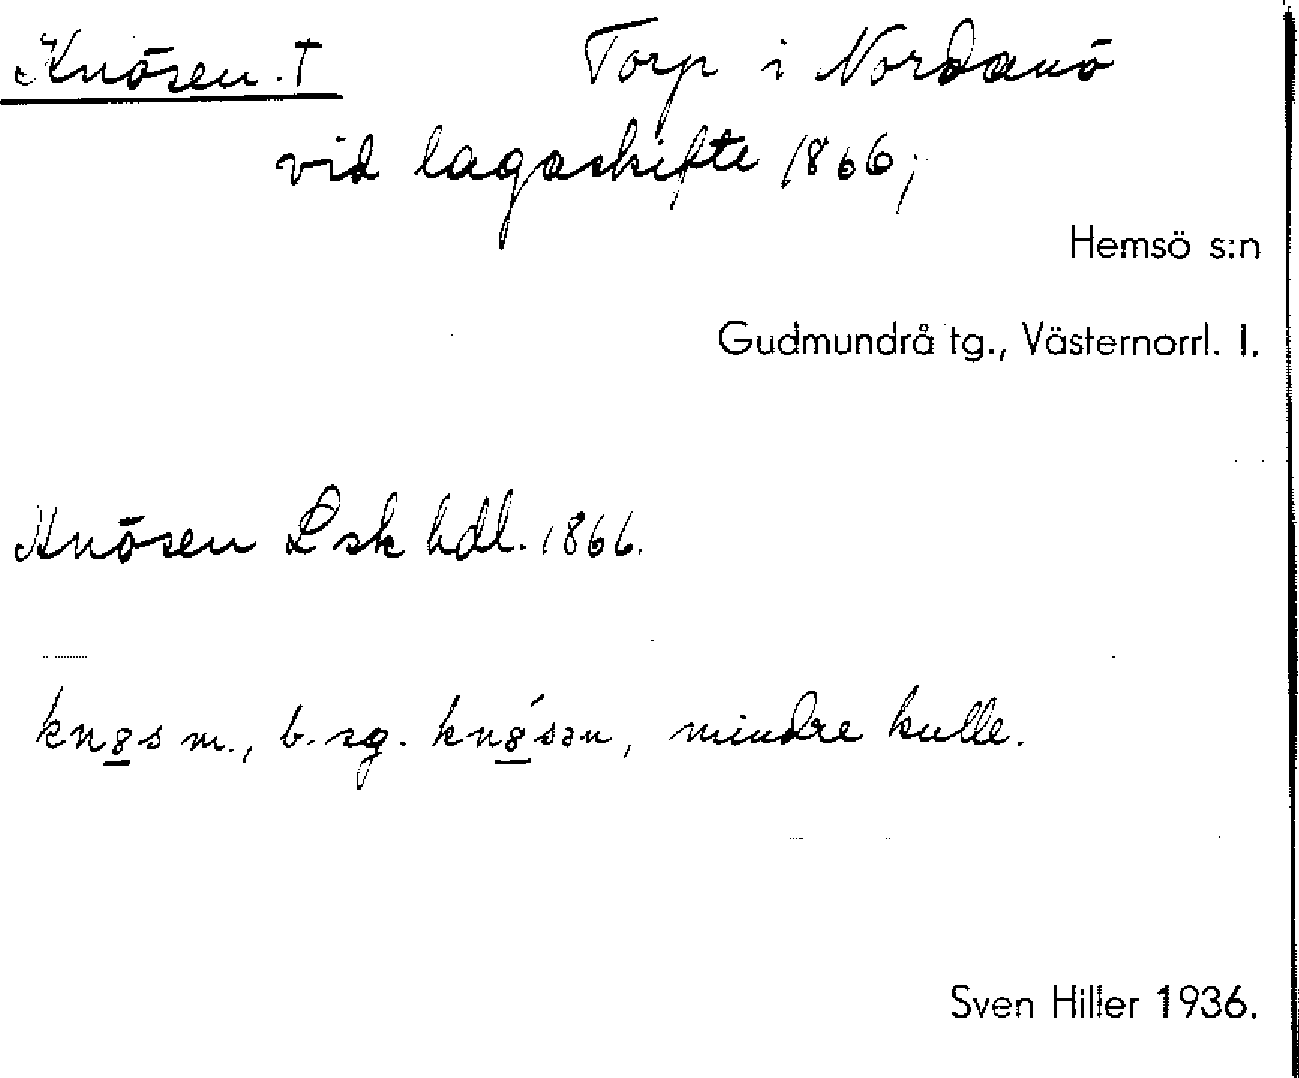 Knösen. † Torp i Nordanö
vid lagaskifte 1866;
Hemsö s:n
Gudmundrå tg., Västernorrl. l.
Knösen Lsk hdl. 1866.
knɞs m., b. sg. knɞ́sən, mindre kulle.
Sven Hiller 1936.